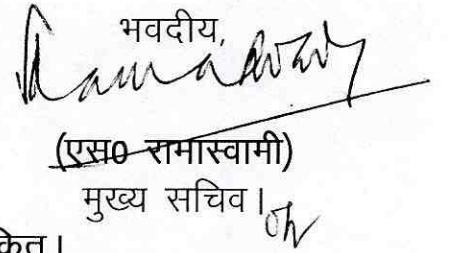 भवदीय,
(एस0 रामास्वामी)
मुख्य सचिव।
कित।